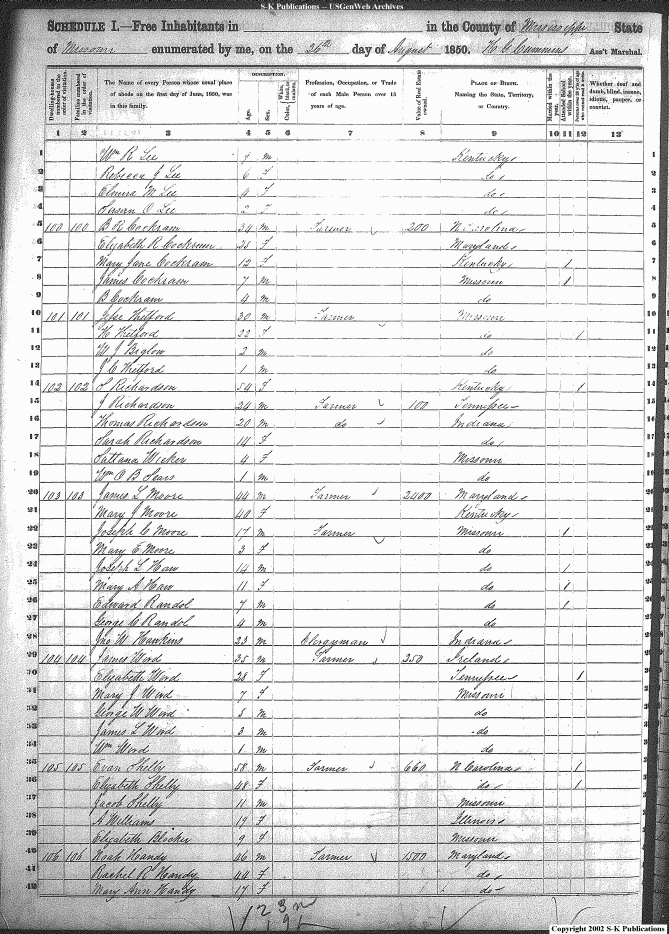 S-K Publications -- USGenWeb Archives
SCHEDULE I.—Free Inhabitants in in the County of Mississippi State
of Missouri enumerated by me, on the 26th day of August 1850. H G Cummins Ass't Marshal.
Dwelling-houses numbered in the order of visitation. Families numbered in the order of visitation. The Name of every Person whose usual place of abode on the first day of June, 1850, was in this family. DESCRIPTION. Age. Sex. Color, White, black, or mulatto. Profession, Occupation, or Trade of each Male Person over 15 years of age. Value of Real Estate owned. PLACE OF BIRTH. Naming the State, Territory, or Country. Married within the year. Attended School within the year. Whether deaf and dumb, blind, insane, idiotic, pauper, or convict.
1 2 3 4 5 6 7 8 9 10 11 12 13
1 Wm R Lee 9 m Kentucky 1
2 Rebecca J Lee 6 F do 2
3 Elmira M Lee 4 F do 3
4 Susan O Lee 2 F do 4
5 100 100 B R Cockram 34 m Farmer 200 N Carolina 5
6 Elizabeth R Cockrum 35 F Maryland 6
7 Mary Jane Cockram 12 F Kentucky 1 7
8 James Cockram 7 m Missouri 1 8
9 B Cockram 4 m do 9
10 101 101 Jesse Thetford 30 m Farmer Missouri 10
11 H Thetford 22 F do 1 11
12 W J Biglow 2 m do 12
13 J C Thetford 1 m do 13
14 102 102 S Richardson 54 F Kentucky 1 14
15 J Richardson 24 m Farmer 100 Tennessee 15
16 Thomas Richardson 20 m do Indiana 16
17 Sarah Richardson 14 F do 17
18 Wicker 4 F Missouri 18
19 Wm O B Sears 1 m do 19
20 103 103 James L Moore 44 m Farmer 2400 Maryland 20
21 Mary J Moore 40 F Kentucky 21
22 Joseph C Moore 17 m Farmer Missouri 1 22
23 Mary E Moore 3 F do 23
24 Joseph L Haw 14 m do 1 24
25 Mary A Haw 11 F do 1 25
26 Edward Randol 7 m do 1 26
27 George C Randol 4 m do 27
28 Jno W Hawkins 23 m Clergyman Indiana 28
29 104 104 James Word 35 m Farmer 250 Ireland 29
30 Elizabeth Word 28 F Tennessee 1 30
31 Mary J Word 7 F Missouri 31
32 George W Word 5 m do 32
33 James L Word 3 m do 33
34 Wm Word 1 m do 34
35 105 105 Evan Shelby 58 m Farmer 660 N Carolina 1 35
36 Elizabeth Shelby 48 F do 1 36
37 Jacob Shelby 11 m Missouri 37
38 A Williams 19 F Illinois 38
39 Elizabeth Blocker 9 F Missouri 39
40 106 106 Noah Handy 46 m Farmer 1500 Maryland 40
41 Rachel R Handy 44 F do 41
42 Mary Ann Handy 17 F do 42
Copyright 2002 S-K Publications